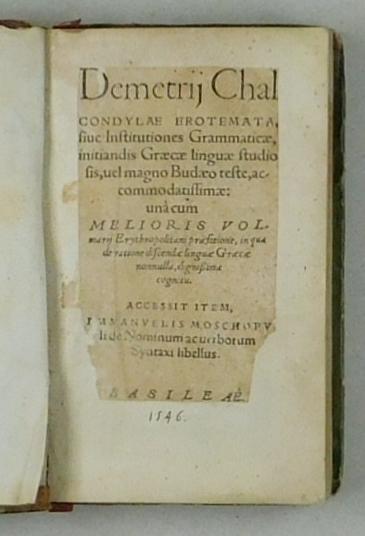 Demetrij Chal
CONDYLAE EROTEMATA,
siue Institutiones Grammaticæ,
initiandis Græcæ linguæ studio
sis, uel magno Budæo teste, ac-
commodatissimæ:
unà cum
MELIORIS VOL-
marij Erythropolitani præfatione, in qua
de ratione discendæ linguæ Græcæ
nonnulla, dignissima
cognitu.
ACCESSIT ITEM,
IMMANVELIS MOSCHOPV
li de Nominum ac uerborum
Syntaxi libellus.
BASILEAE
1546.